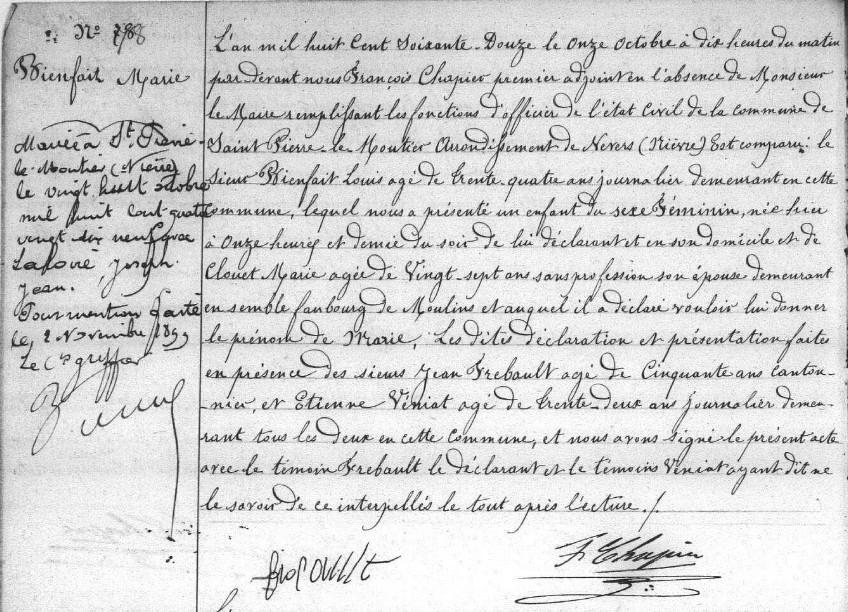 Nº
Bienfait Marie
Mariée à St. Pierre
le-Moutier (Nièvre)
le vingt huit octobre
mil huit cent quatre
vingt dix neuf avec
Joseph
Jean.
Pour mention faite
le, 2 Novembre 1899
Le Cis greffier
L'an mil huit Cent Soixante-Douze le Onze Octobre à dix heures du matin
par devant nous François Chapier premier adjoint en l'absence de Monsieur
le Maire remplissant les fonctions d'officier de l'état Civil de la commune de
Saint Pierre-le Moutier Arrondissement de Nevers (Nièvre) Est comparu: le
sieur Bienfait Louis agé de trente-quatre ans journalier demeurant en cette
Commune, lequel nous a présenté un enfant du sexe Féminin, née hier
à Onze heures et demie du soir de lui déclarant et en son domicile et de
Clouet Marie agée de Vingt-sept ans sans profession son épouse demeurant
ensemble faubourg de Moulins et auquel il a déclaré vouloir lui donner
le prénom de Marie, Les dites déclaration et présentation faites
en présence des sieurs Jean Frebault agé de Cinquante ans Canton-
-nier, et Etienne Véniat agé de trente-deux ans journalier demeu-
rant tous les deux en cette commune, et nous avons signé le présent acte
avec le témoin Frebault le déclarant et le témoins Véniat ayant dit ne
le savoir de ce interpellés le tout après lecture./.
F. Chapier